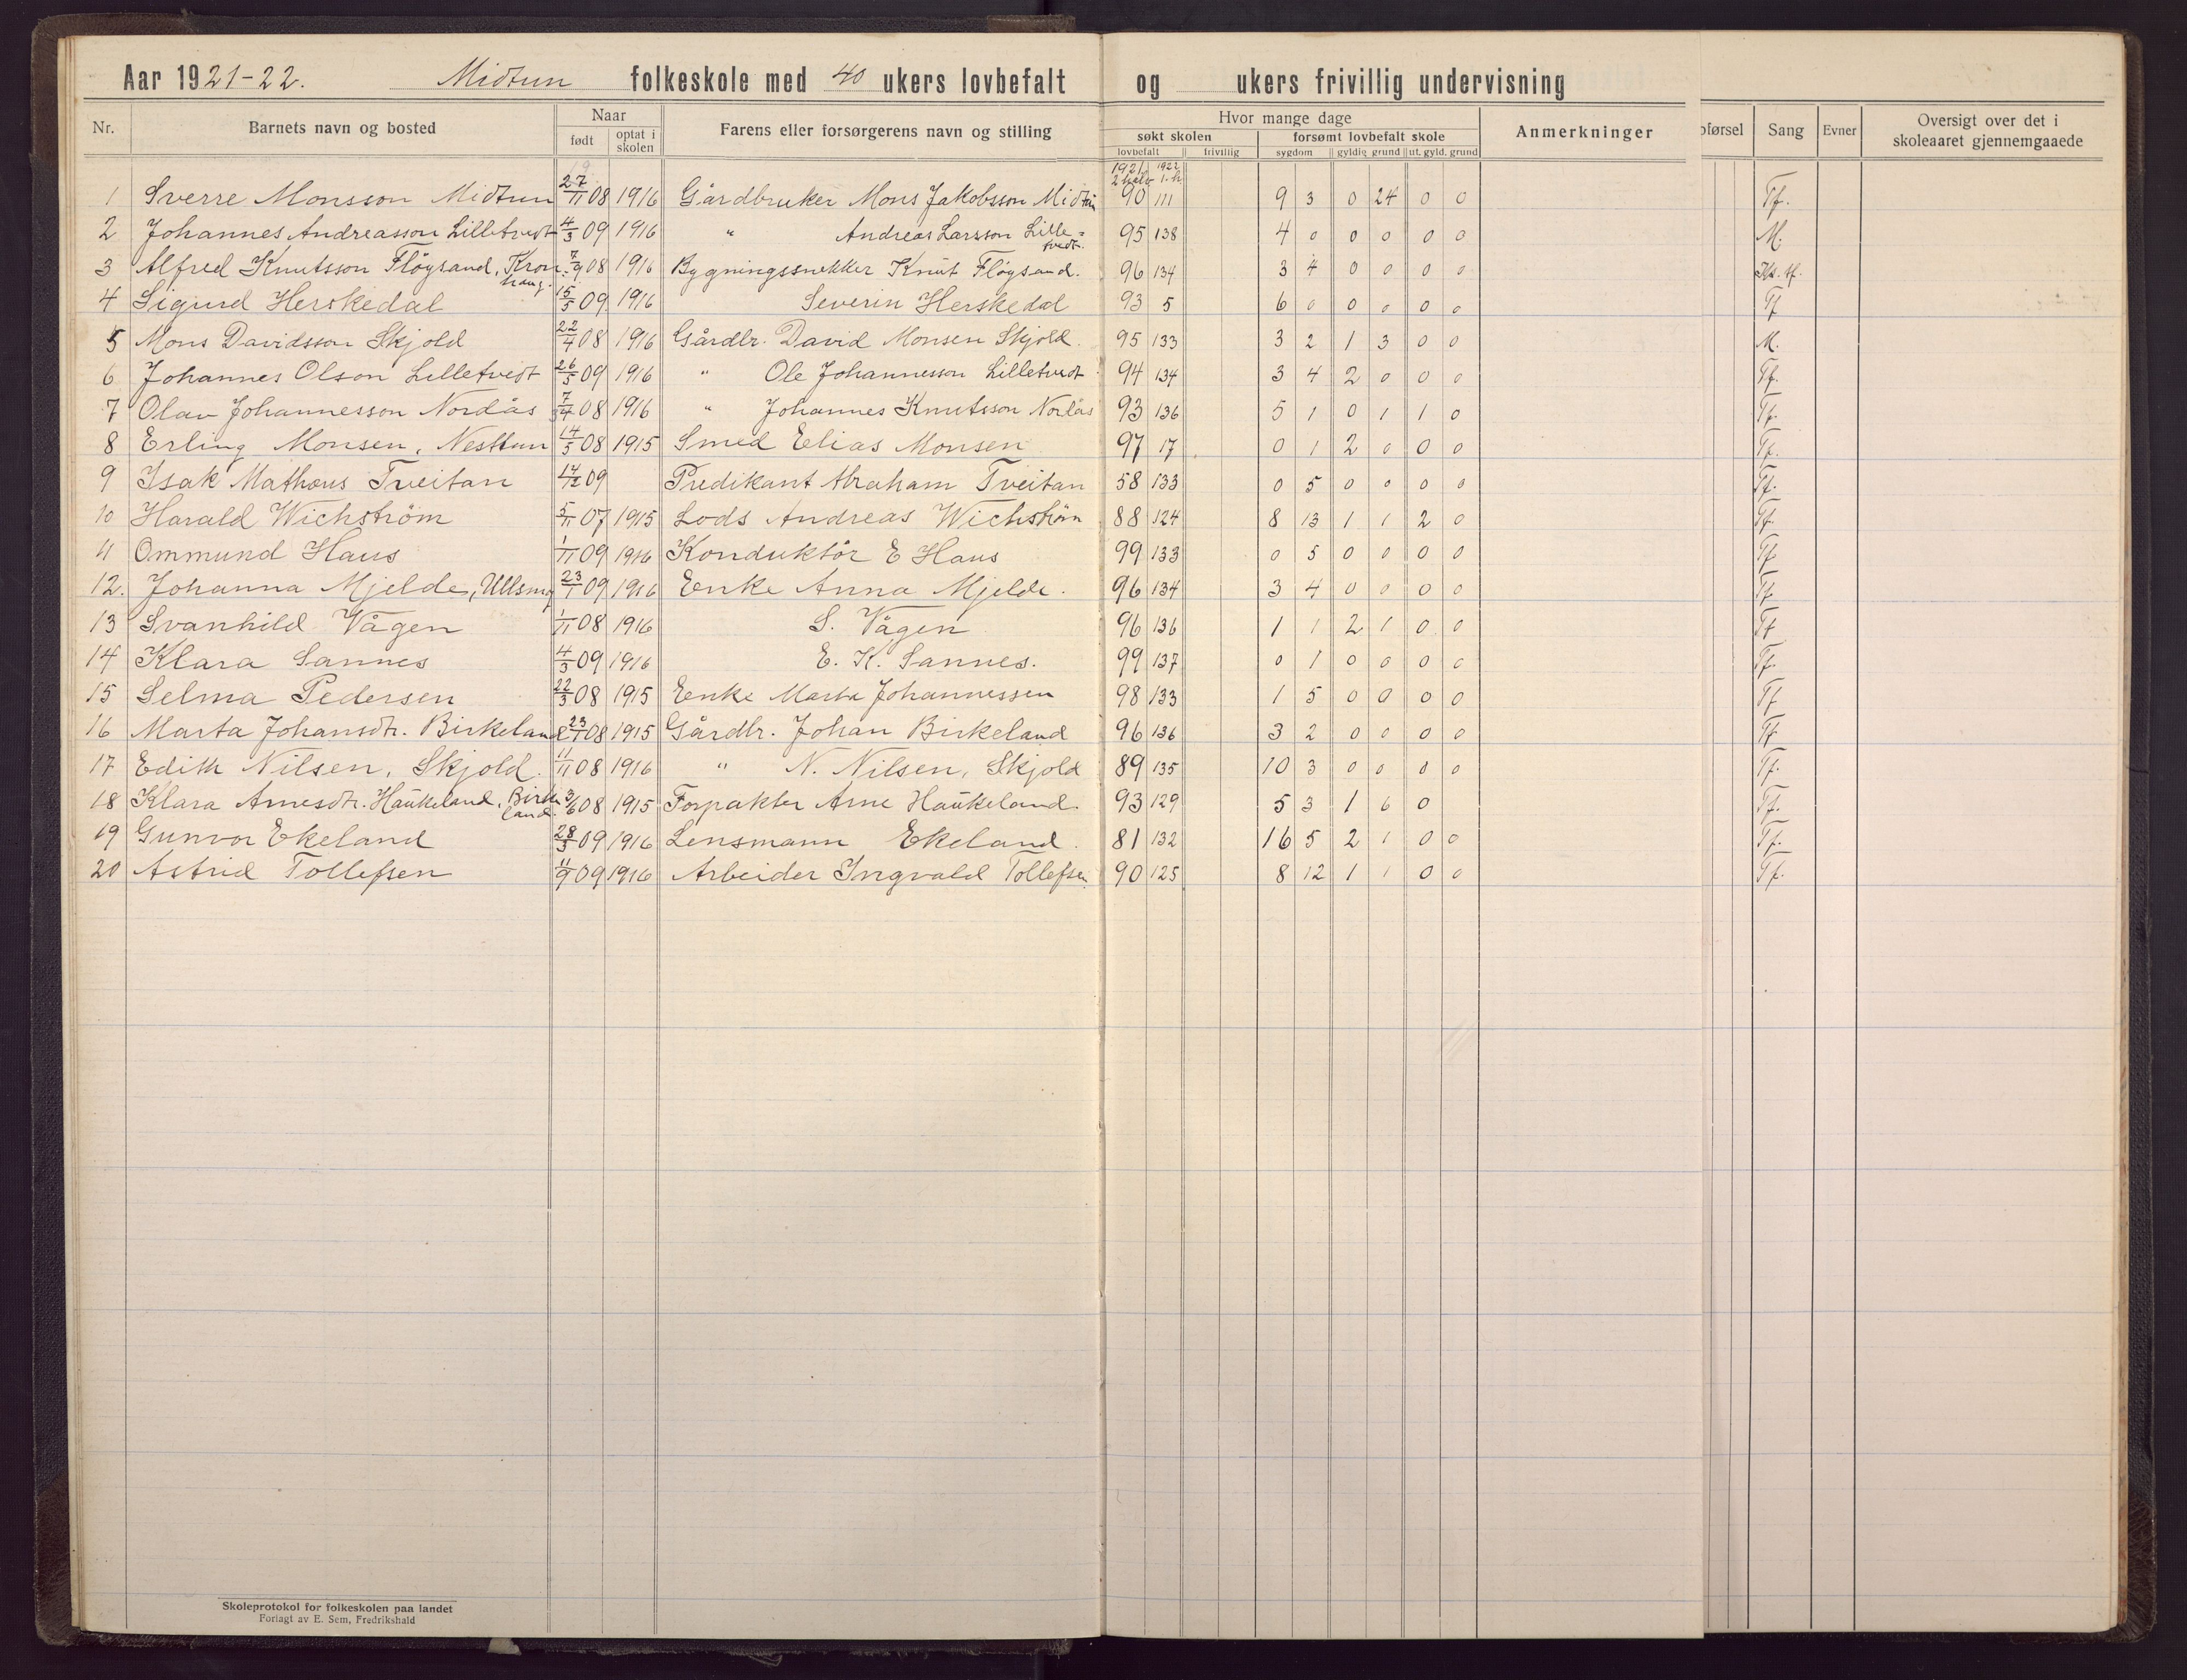 Aar 1921-22. Midtun folkeskole med 40 ukers lovbefalt og ukers frivillig undervisning
Nr. Barnets navn og bosted Naar født optat i skolen Farens eller forsørgerens navn og stilling Hvor mange dage søkt skolen lovbefalt frivillig forsømt lovbefalt skole sygdom gyldig grund ut. gyld. grund Anmerkninger oførsel Sang Evner Oversigt over det i skoleaaret gjennemgaaede
19 1921 2 halv 1922 1. h
1 Sverre Monsson Midtun 27/11 08 1916 Gårdbruker Mons Jakobsson Midtun 90 111 9 3 0 24 0 0 Tf.
2 Johannes Andreasson Lilletvedt 4/3 09 1916 " Andreas Larsson Lilletvedt. 95 138 4 0 0 0 0 0 M.
3 Alfred Knutsson Fløysand, Kronhaug. 7/9 08 1916 Bygningssnekker Knut Fløysand. 96 134 3 4 0 0 0 0
4 Sigurd Herskedal 15/5 09 1916 Severin Herskedal 93 5 6 0 0 0 0 0 Tf
5 Mons Davidsson Skjold 22/4 08 1916 Gårdbr. David Monsen Skjold. 95 133 3 2 1 3 0 0 M.
6 Johannes Olson Lilletvedt 26/5 09 1916 " Ole Johannesson Lilletvedt 94 134 3 4 2 0 0 0 Tf.
7 Olav Johannesson Nordås 7/4 08 1916 " Johannes Knutsson Nordås 93 136 5 1 0 1 1 0 Tf.
8 Erling Monsen, Nesttun 14/5 08 1915 Smed Elias Monsen 97 17 0 1 2 0 0 0 Tf.
9 Isak Mathæus Tveitan 14/12 09 Predikant Abraham Tveitan 58 133 0 5 0 0 0 0 Tf.
10 Harald Wichstrøm 5/11 07 1915 Lods Andreas Wichstrøm 88 124 8 13 1 1 2 0 Tf.
11 Ommund Haus 1/11 09 1916 Konduktør E Haus 99 133 0 5 0 0 0 0 Tf.
12. Johanna Mjelde, Ullsmug 23/1 09 1916 Enke Anna Mjelde. 96 134 3 4 0 0 0 0 Tf
13 Svanhild Vågen 1/11 08 1916 S. Vågen 96 136 1 1 2 1 0 0 Tf
14 Klara Sannes 4/3 09 1916 E. K. Sannes. 99 137 0 1 0 0 0 0 Tf.
15 Selma Pedersen 22/3 08 1915 Enke Marta Johannessen 98 133 1 5 0 0 0 0 Tf
16 Marta Johansdtr. Birkeland 23/1 08 1915 Gårdbr. Johan Birkeland 96 136 3 2 0 0 0 0 Tf
17 Edith Nilsen, Skjold. 11/11 08 1916 " N. Nilsen, Skjold 89 135 10 3 0 0 0 0 Tf.
18 Klara Arnesdtr. Haukeland, Birkeland. 3/6 08 1915 Forpakter Arne Haukeland 93 129 5 3 1 6 0 Tf.
19 Gunvor Ekeland 28/5 09 1916 Lensmann Ekeland. 81 132 16 5 2 1 0 0 Tf.
20 Astrid Tollefsen 11/9 09 1916 Arbeider Ingvald Tollefsen 90 125 8 12 1 1 0 0 Tf.
Skoleprotokol for folkeskolen paa landet
Forlagt av E. Sem, Fredrikshald